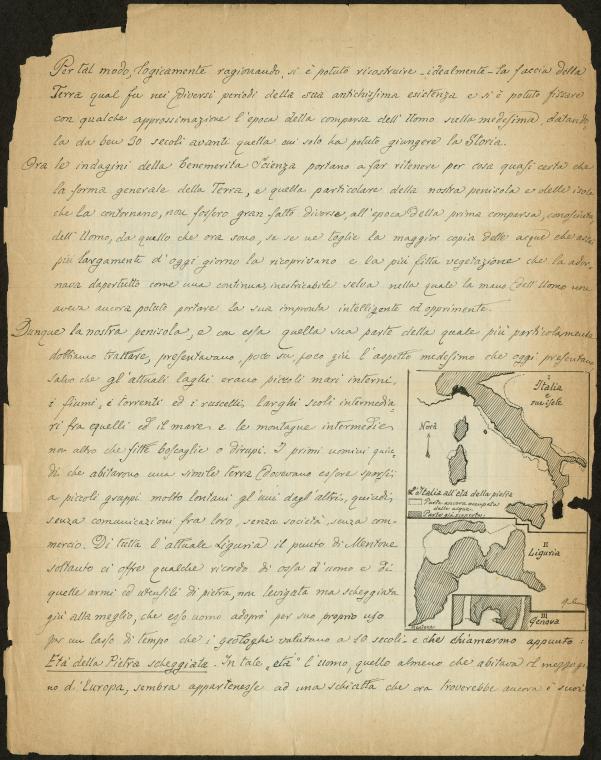 Per tal modo, logicamente ragionando, si è potuto ricostruire – idealmente – la faccia della
Terra qual fu nei diversi periodi della sua antichissima esistenza e si è potuto fissare
con qualche approssimazione l'epoca della comparsa dell'Uomo sulla medesima, datando
la da ben 50 secoli avanti quella cui solo ha potuto giungere la Storia.
Ora le indagini della benemerita Scienza portano a far ritenere per cosa quasi certa che
la forma generale della Terra, e quella particolare della nostra penisola e delle isole
che la contornano, non fossero gran fatto diverse, all'epoca della prima comparsa, conosciuta
dell'Uomo, da quello che ora sono, se se ne toglie la maggior copia delle acque che assai
più largamente d'oggi giorno la ricoprivano e la più fitta vegetazione che la ador-
nava dapertutto come una continua, inestricabile selva nella quale la mano dell'Uomo non
aveva ancora potuto portare la sua impronta intelligente ed opprimente.
Dunque la nostra penisola, e con essa quella sua parte della quale più particolarmente
dobbiamo trattare, presentavano, poco su poco giù l'aspetto medesimo che oggi presentano
salvo che gl'attuali laghi erano piccoli mari interni,
i fiumi, e torrenti ed i ruscelli, larghi scoli intermedia-
ri fra quelli ed il mare e le montagne intermedie
non altro che fitte boscaglie o dirupi. I primi uomini quin-
di che abitarono una simile terra dovevano essere sparsi
a piccoli gruppi molto lontani gl'uni dagl'altri, quindi,
senza comunicazioni fra loro, senza società, senza com-
mercio. Di tutta l'attuale Liguria il punto di Mentone
soltanto ci offre qualche ricordo di ossa d'uomo e di
quelle armi ed utensili di pietra, non levigata ma scheggiata
giù alla meglio, che esso uomo adoprò per suo proprio uso
per un lasso di tempo che i geologhi valutano a 50 secoli e che chiamarono appunto:
Età della Pietra scheggiata. In tale „età" l'uomo, quello almeno che abitava il mezzogior
no d'Europa, sembra appartenesse ad una schiatta che ora troverebbe ancora i suoi
I
Italia
e
sue isole
Nord
L'Italia all'età della pietra
Parte ancora occupata
dalle acque.
Parte già scoperta.
II
Liguria
III
Genova